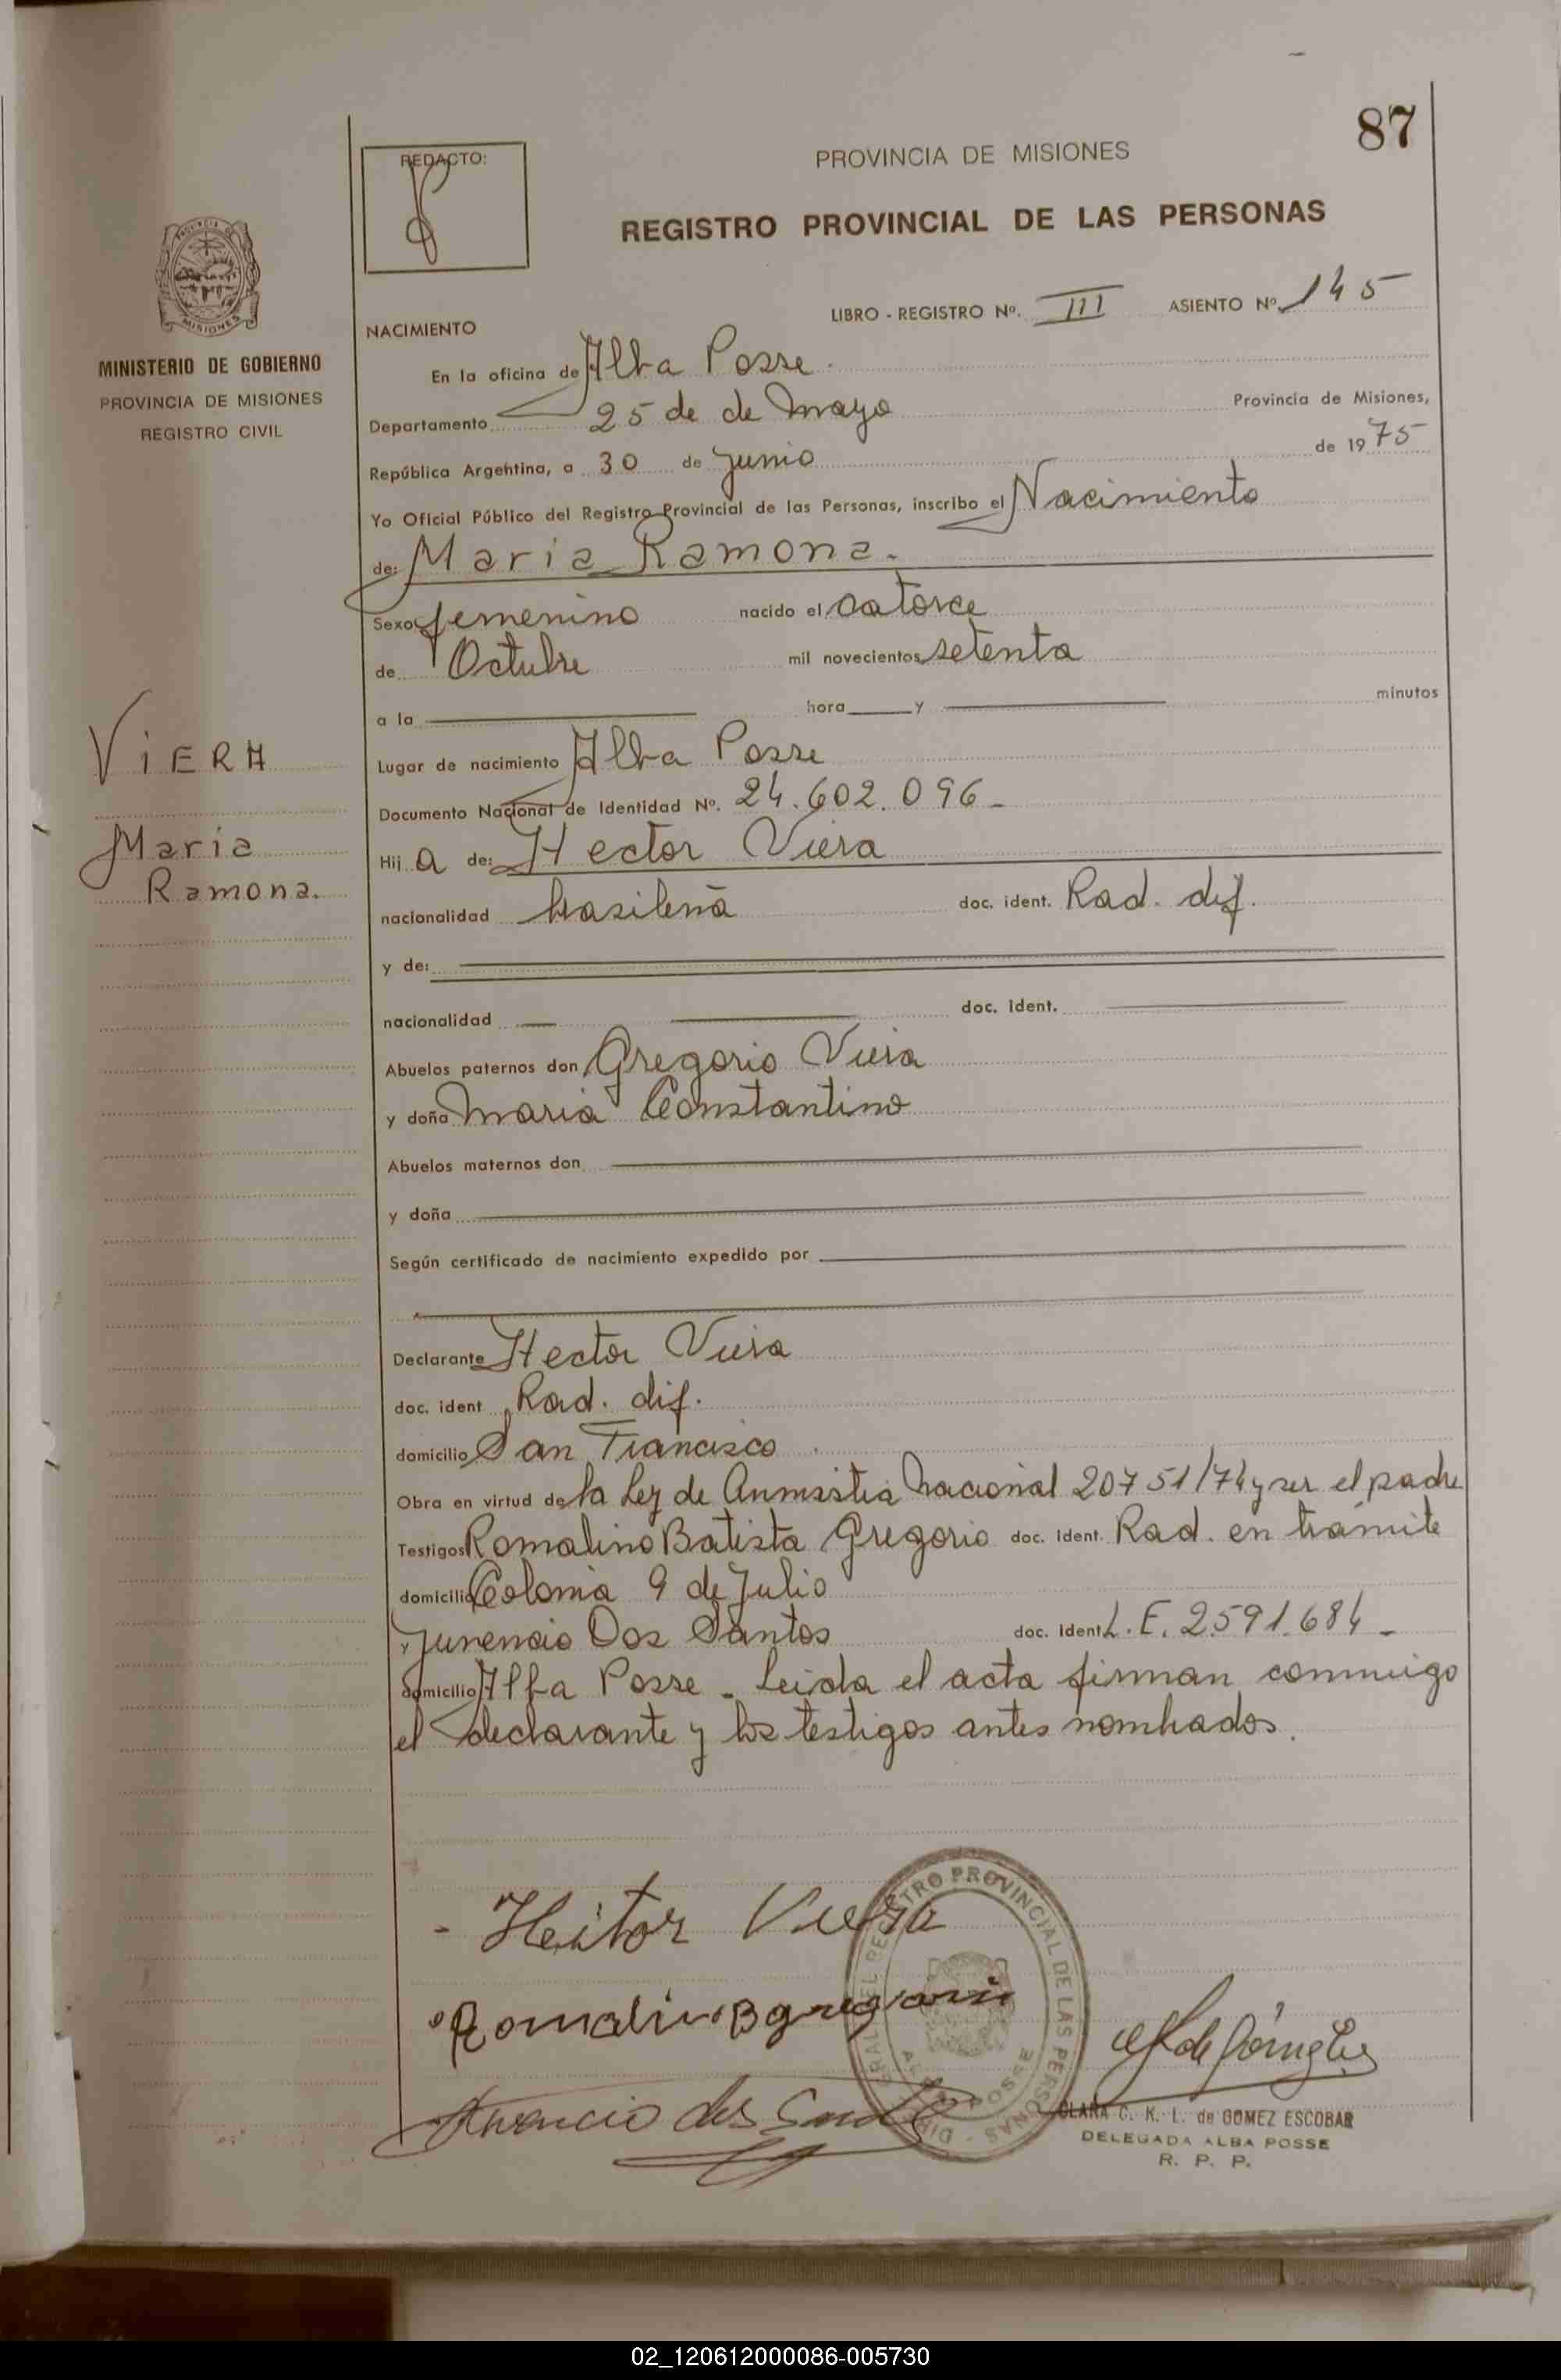 87
REDACTO:
PROVINCIA DE MISIONES
REGISTRO PROVINCIAL DE LAS PERSONAS
LIBRO - REGISTRO Nº. III ASIENTO Nº 145
NACIMIENTO
MINISTERIO DE GOBIERNO
PROVINCIA DE MISIONES
REGISTRO CIVIL
En la oficina de Alba Posse.
Departamento 25 de de Mayo Provincia de Misiones,
República Argentina, a 30 de Junio de 1975
Yo Oficial Público del Registro Provincial de las Personas, inscribo el Nacimiento
de: Maria Ramona.
Sexo femenino nacido el catorce
de Octubre mil novecientos setenta
a la hora y minutos
VIERA
Maria
Ramona.
Lugar de nacimiento Alba Posse
Documento Nacional de Identidad Nº. 24.602.096-
Hij a de: Hector Viera
nacionalidad brasileña doc. ident. Rad. dif.
y de:
nacionalidad doc. ident.
Abuelos paternos don Gregorio Viera
y doña Maria Constantino
Abuelos maternos don
y doña
Según certificado de nacimiento expedido por
Declarante Hector Viera
doc. ident Rad. dif.
domicilio San Francisco
Obra en virtud de la Ley de Anmistia Nacional 20751/74 y ser el padre
Testigos Romalino Batista Gregorio doc. ident. Rad. en trámite
domicilio Colonia 9 de Julio
y Juvencio Dos Santos doc. ident L.E. 2591.684-
domicilio Alba Posse - Leida el acta firman conmigo
el declarante y los testigos antes nombrados.
- Heitor Viera
Romalino B gregorio
Juvencio dos Santos
REGISTRO PROVINCIAL DE LAS PERSONAS
ALBA POSSE
CLARA C. K. L. de GOMEZ ESCOBAR
DELEGADA ALBA POSSE
R. P. P.
02_120612000086-005730